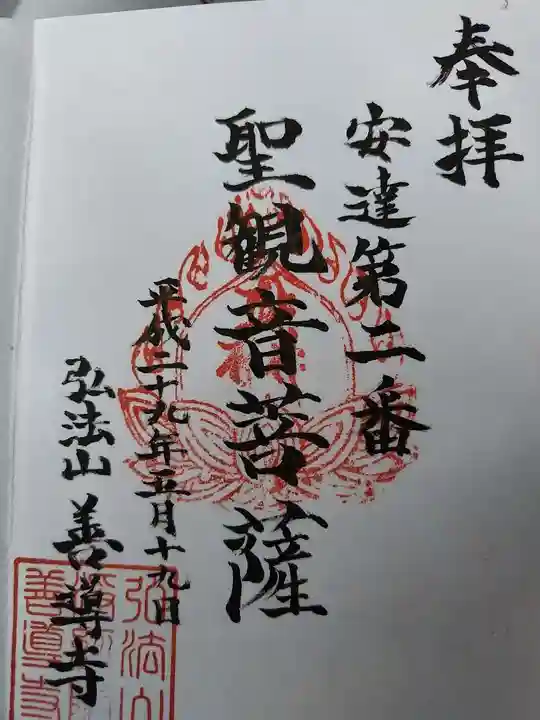 奉拝
安達第二番
聖観音菩薩
平成二十九年五月十九日
弘法山 善導寺
弘法山
善導寺